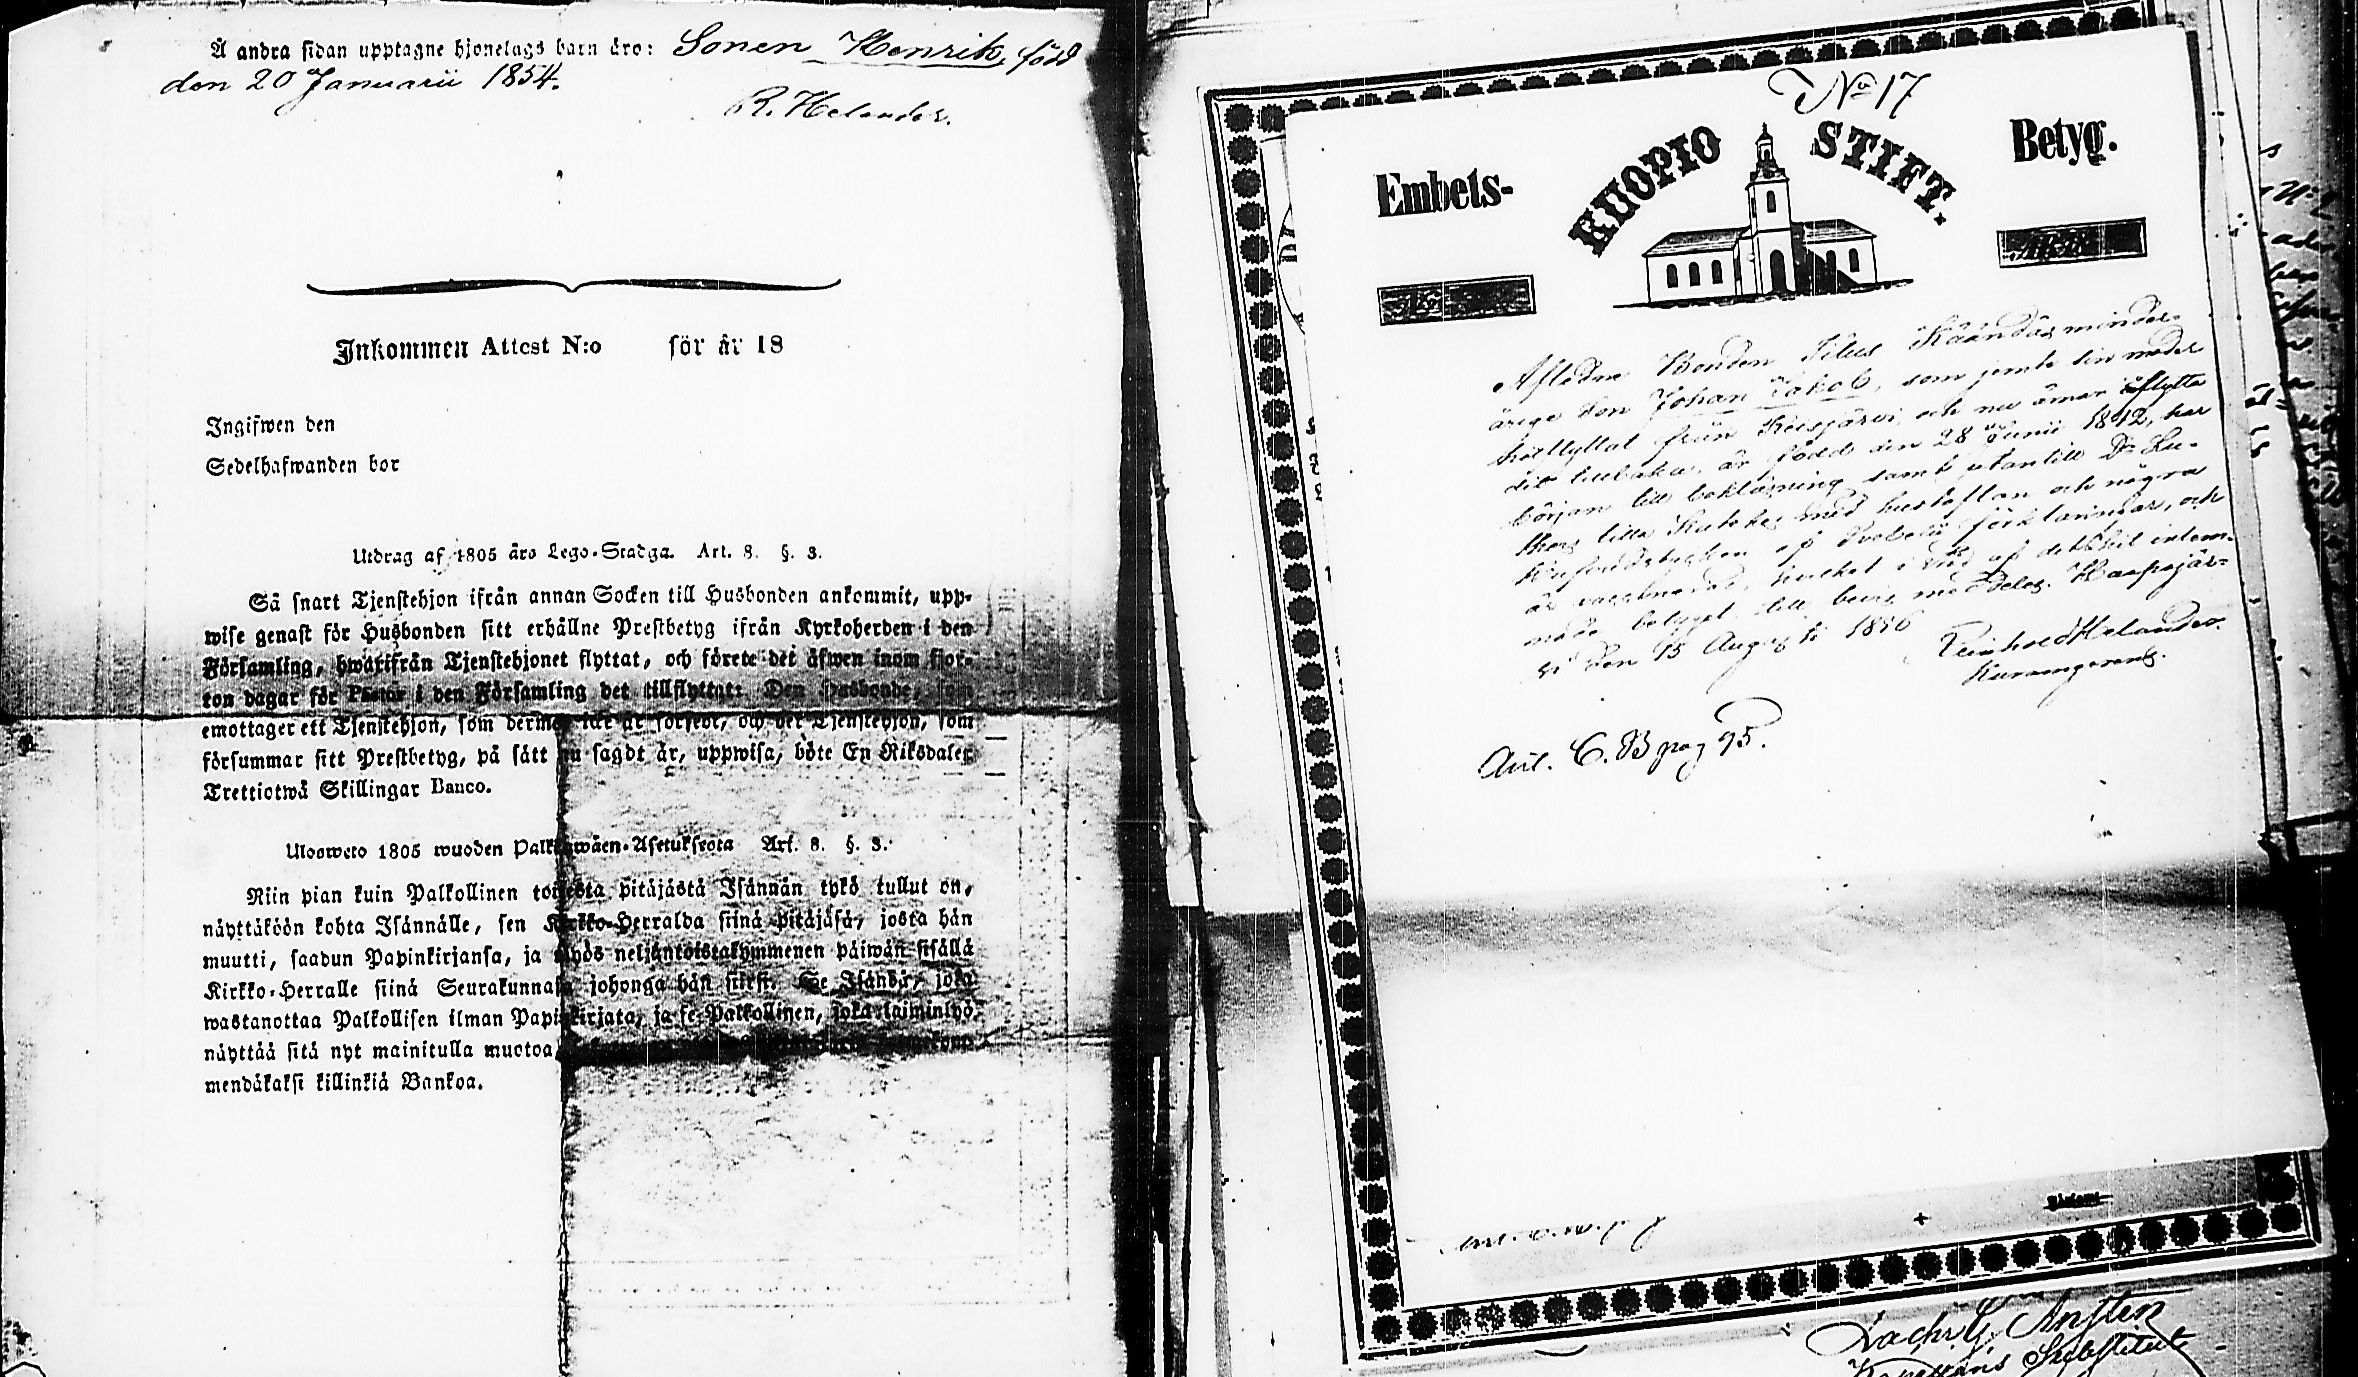 Å andra sidan upptagne hjonelags barn äro: Sonen Henrik, född
den 20 Januarii 1854.
R. Helander.
Inkommen Attest N:o för år 18
Ingifwen den
Sedelhafwanden bor
Utdrag af 1805 års Lego-Stadga. Art. 8. §. 3.
Så snart Tjenstehjon ifrån annan Socken till Husbonden ankommit, upp-
wise genast för Husbonden sitt erhållne Prestbetyg ifrån Kyrkoherden i den
Församling, hwarifrån Tjenstehjonet flyttat, och förete det äfwen inom fjor-
ton dagar för Pastor i den Församling det tillflyttat: Den Husbonde, som
emottager ett Tjenstehjon, som dermed icke är försedt, och det Tjenstehjon, som
försummar sitt Prestbetyg, på sätt nu sagdt är, uppwisa, böte En Riksdaler
Trettiotwå Skillingar Banco.
Ulosweto 1805 wuoden Palkkawäen-Asetuksesta Art. 8. §. 3.
Niin pian kuin Palkollinen toisesta pitäjästä Isännän tykö tullut on,
näyttäköön kohta Isännälle, sen Kirkko-Herralda siinä pitäjäsä, josta hän
muutti, saadun Papinkirjansa, ja myös neljäntoistakymmenen päiwän sisällä
Kirkko-Herralle siinä Seurakunnasa johonga hän siirsi. Se Isändä, joka
wastanottaa Palkollisen ilman Papinkirjata, ja se Palkollinen, joka laiminlyö
näyttää sitä nyt mainitulla muotoa,
mendäkaksi killinkiä Bankoa.
No 17
Embets- KUOPIO STIFT. Betyg.
Aflidne Bonden Silus Käändäs minder-
årige Son Johan Jakob, som jemte sin moder
hitflyttat från Reisjärvi och nu ämar åflytta
dit tillbaka, är född den 28 Junii 1842, har
början till boklösning samt utantill Dr Lu-
thers lilla Kateches med hustaflan och några
förklaringar, och
är vaccinerad, hvilket i stöd af
betyget till bevis meddelas. Haapajär-
vi den 15 Augusti 1856
Reinhold Helander.
Aut. C. B pag 95.
Zachr. G. Ansten
Kapellans Substitut